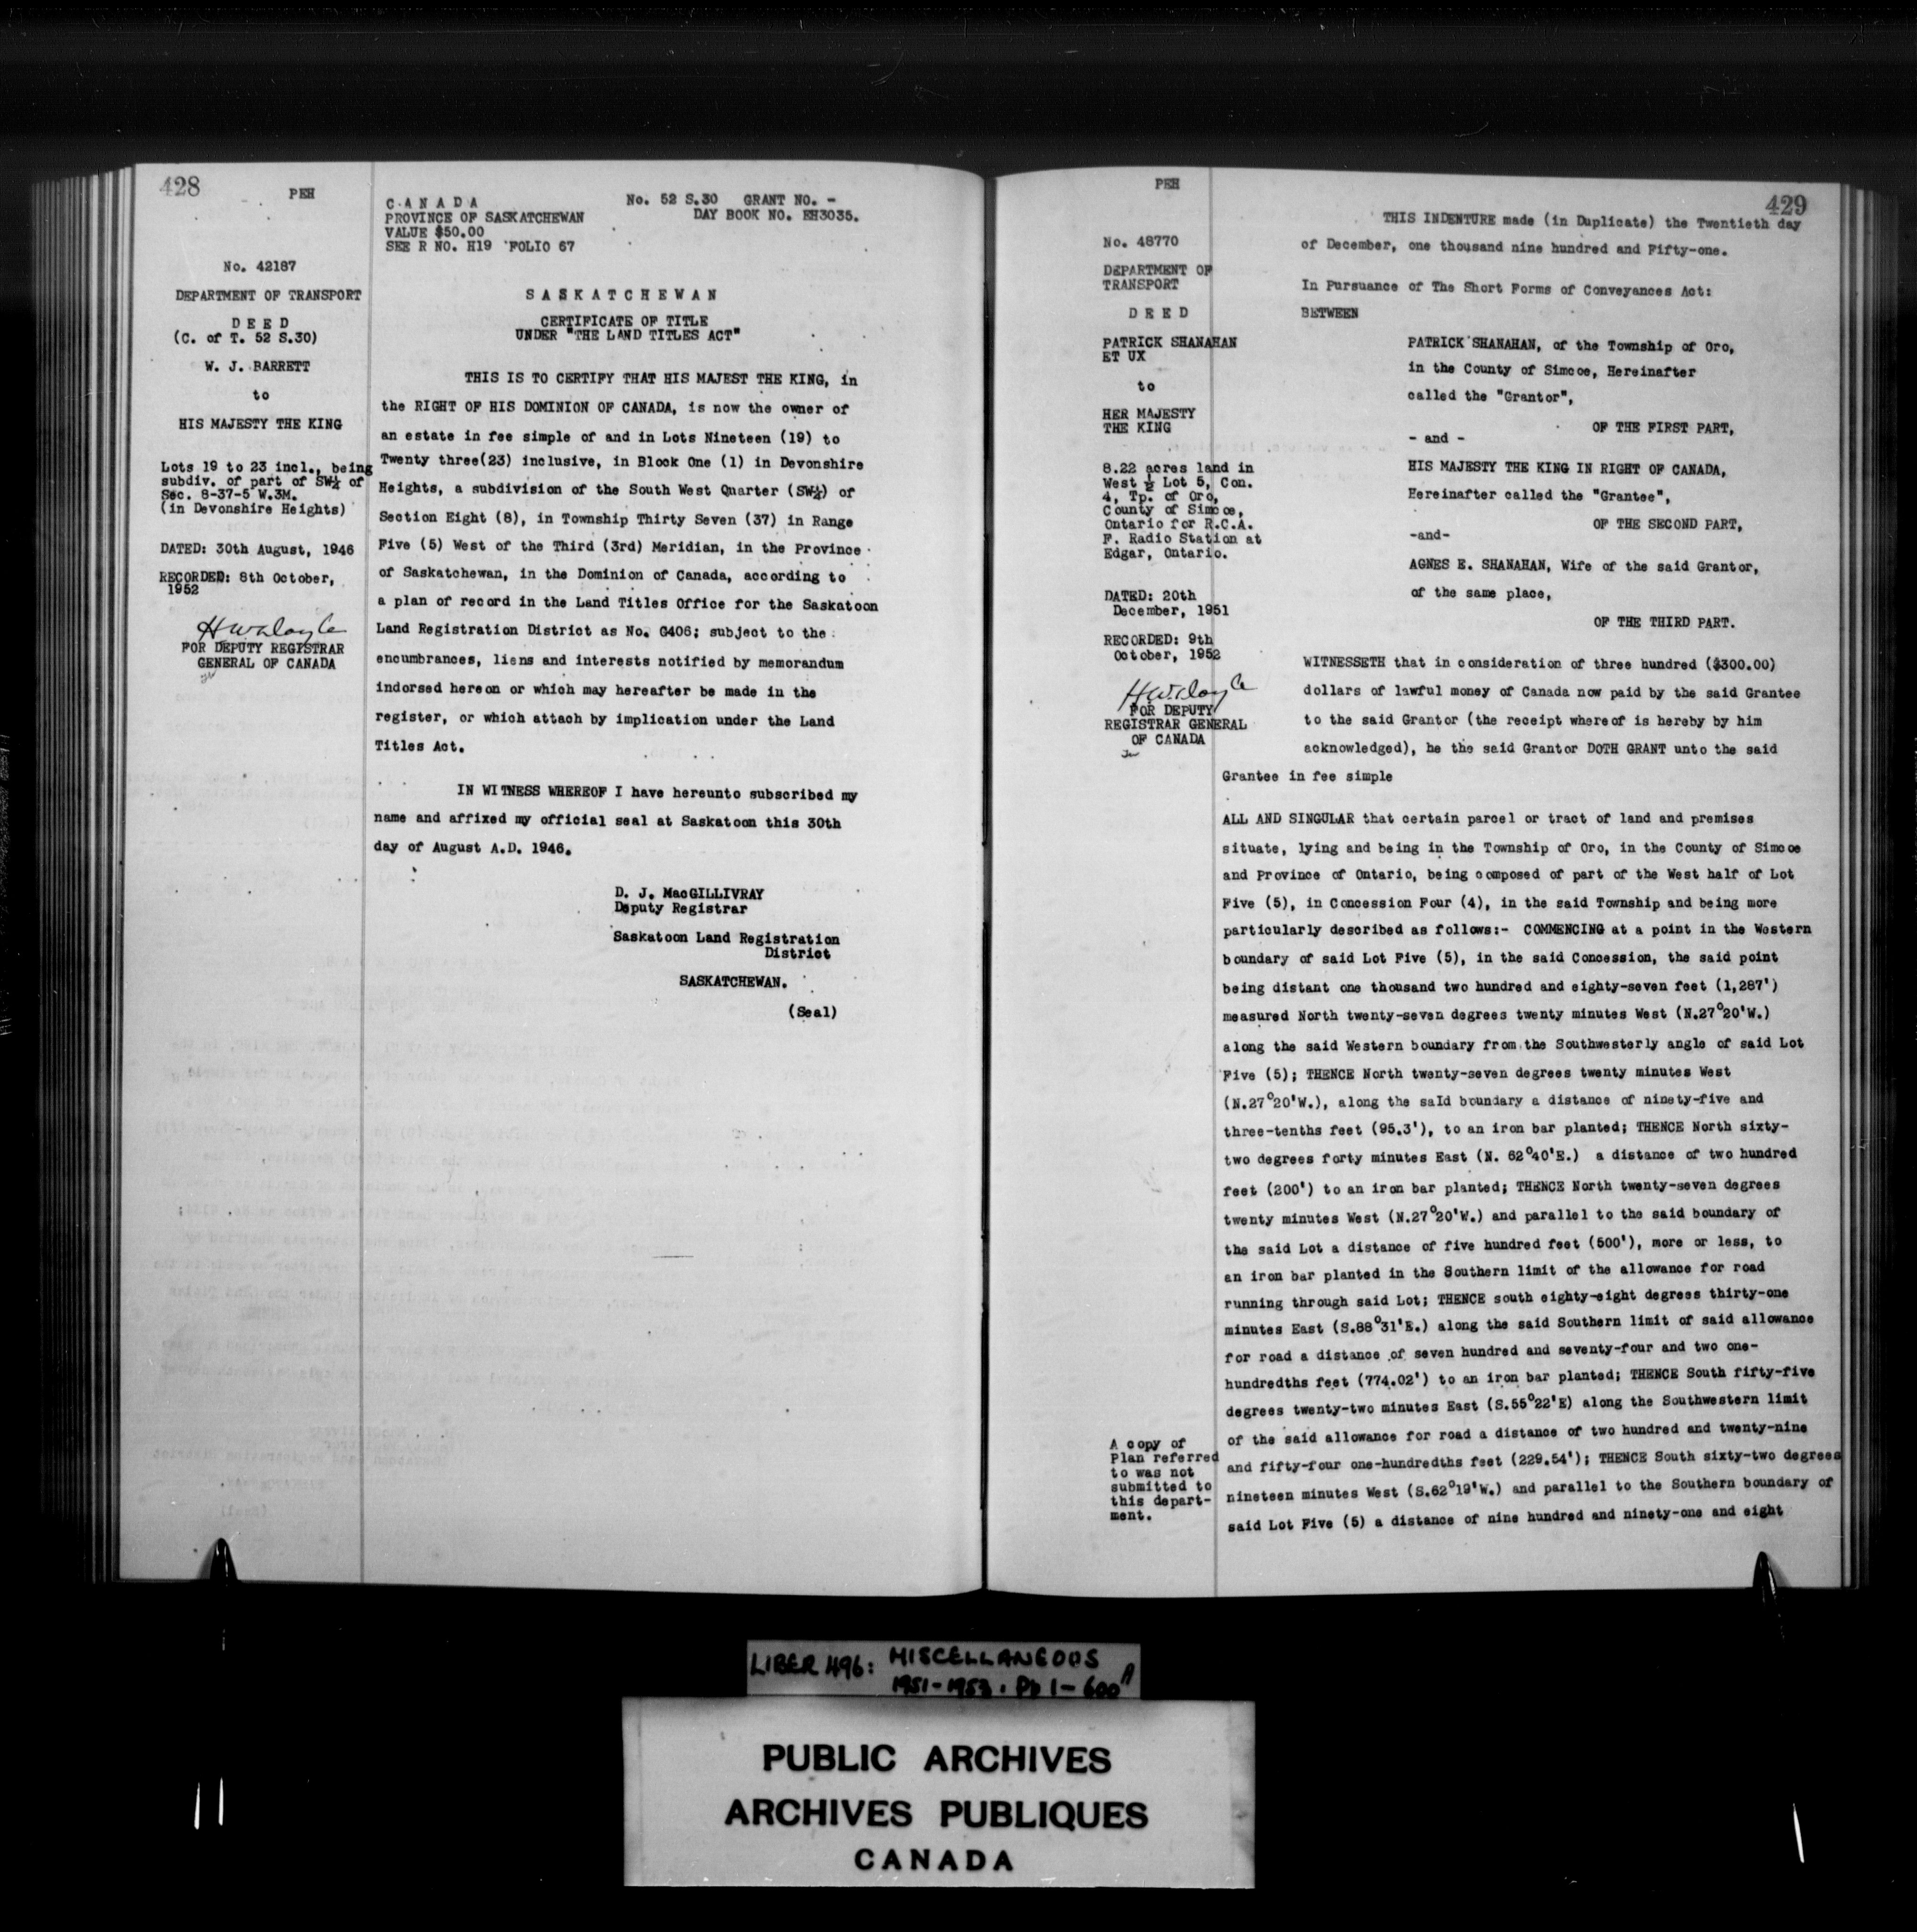 428
PEH
No. 42187
DEPARTMENT OF TRANSPORT
D E E D
(C. of T. 52 S.30)
W. J. BARRETT
to
HIS MAJESTY THE KING
Lots 19 to 23 incl., being
subdiv. of part of SW¼ of
Sec. 8-37-5 W.3M.
(in Devonshire Heights)
DATED: 30th August, 1946
RECORDED: 8th October,
1952
FOR DEPUTY REGISTRAR
GENERAL OF CANADA
C A N A D A
PROVINCE OF SASKATCHEWAN
VALUE $50.00
SEE R NO. H19 FOLIO 67
No. 52 S.30 GRANT NO. -
DAY BOOK NO. EH3035.
S A S K A T C H E W A N
CERTIFICATE OF TITLE
UNDER "THE LAND TITLES ACT"
THIS IS TO CERTIFY THAT HIS MAJEST THE KING, in
the RIGHT OF HIS DOMINION OF CANADA, is now the owner of
an estate in fee simple of and in Lots Nineteen (19) to
Twenty three(23) inclusive, in Block One (1) in Devonshire
Heights, a subdivision of the South West Quarter (SW¼) of
Section Eight (8), in Township Thirty Seven (37) in Range
Five (5) West of the Third (3rd) Meridian, in the Province
of Saskatchewan, in the Dominion of Canada, according to
a plan of record in the Land Titles Office for the Saskatoon
Land Registration District as No. G406; subject to the
encumbrances, liens and interests notified by memorandum
indorsed hereon or which may hereafter be made in the
register, or which attach by implication under the Land
Titles Act.
IN WITNESS WHEREOF I have hereunto subscribed my
name and affixed my official seal at Saskatoon this 30th
day of August A.D. 1946.
D. J. MacGILLIVRAY
Deputy Registrar
Saskatoon Land Registration
District
SASKATCHEWAN.
(Seal)
PEH
429
No. 48770
DEPARTMENT OF
TRANSPORT
D E E D
PATRICK SHANAHAN
ET UX
to
HER MAJESTY
THE KING
8.22 acres land in
West ½ Lot 5, Con.
4, Tp. of Oro,
County of Simcoe,
Ontario for R.C.A.
F. Radio Station at
Edgar, Ontario.
DATED: 20th
December, 1951
RECORDED: 9th
October, 1952
FOR DEPUTY
REGISTRAR GENERAL
OF CANADA
A copy of
Plan referred
to was not
submitted to
this depart-
ment.
THIS INDENTURE made (in Duplicate) the Twentieth day
of December, one thousand nine hundred and Fifty-one.
In Pursuance of The Short Forms of Conveyances Act:
BETWEEN
PATRICK SHANAHAN, of the Township of Oro,
in the County of Simcoe, Hereinafter
called the "Grantor",
OF THE FIRST PART,
- and -
HIS MAJESTY THE KING IN RIGHT OF CANADA,
Hereinafter called the "Grantee",
OF THE SECOND PART,
-and-
AGNES E. SHANAHAN, Wife of the said Grantor,
of the same place,
OF THE THIRD PART.
WITNESSETH that in consideration of three hundred ($300.00)
dollars of lawful money of Canada now paid by the said Grantee
to the said Grantor (the receipt whereof is hereby by him
acknowledged), he the said Grantor DOTH GRANT unto the said
Grantee in fee simple
ALL AND SINGULAR that certain parcel or tract of land and premises
situate, lying and being in the Township of Oro, in the County of Simcoe
and Province of Ontario, being composed of part of the West half of Lot
Five (5), in Concession Four (4), in the said Township and being more
particularly described as follows:- COMMENCING at a point in the Western
boundary of said Lot Five (5), in the said Concession, the said point
being distant one thousand two hundred and eighty-seven feet (1,287')
measured North twenty-seven degrees twenty minutes West (N.27°20'W.)
along the said Western boundary from the Southwesterly angle of said Lot
Five (5); THENCE North twenty-seven degrees twenty minutes West
(N.27°20'W.), along the saId boundary a distance of ninety-five and
three-tenths feet (95.3'), to an iron bar planted; THENCE North sixty-
two degrees forty minutes East (N. 62°40'E.) a distance of two hundred
feet (200') to an iron bar planted; THENCE North twenty-seven degrees
twenty minutes West (N.27°20'W.) and parallel to the said boundary of
the said Lot a distance of five hundred feet (500'), more or less, to
an iron bar planted in the Southern limit of the allowance for road
running through said Lot; THENCE south eighty-eight degrees thirty-one
minutes East (S.88°31'E.) along the said Southern limit of said allowance
for road a distance of seven hundred and seventy-four and two one-
hundredths feet (774.02') to an iron bar planted; THENCE South fifty-five
degrees twenty-two minutes East (S.55°22'E) along the Southwestern limit
of the said allowance for road a distance of two hundred and twenty-nine
and fifty-four one-hundredths feet (229.54'); THENCE South sixty-two degrees
nineteen minutes West (S.62°19'W.) and parallel to the Southern boundary of
said Lot Five (5) a distance of nine hundred and ninety-one and eight
LIBER 496: MISCELLANEOUS
1951-1953. Pp 1-600 A
PUBLIC ARCHIVES
ARCHIVES PUBLIQUES
CANADA